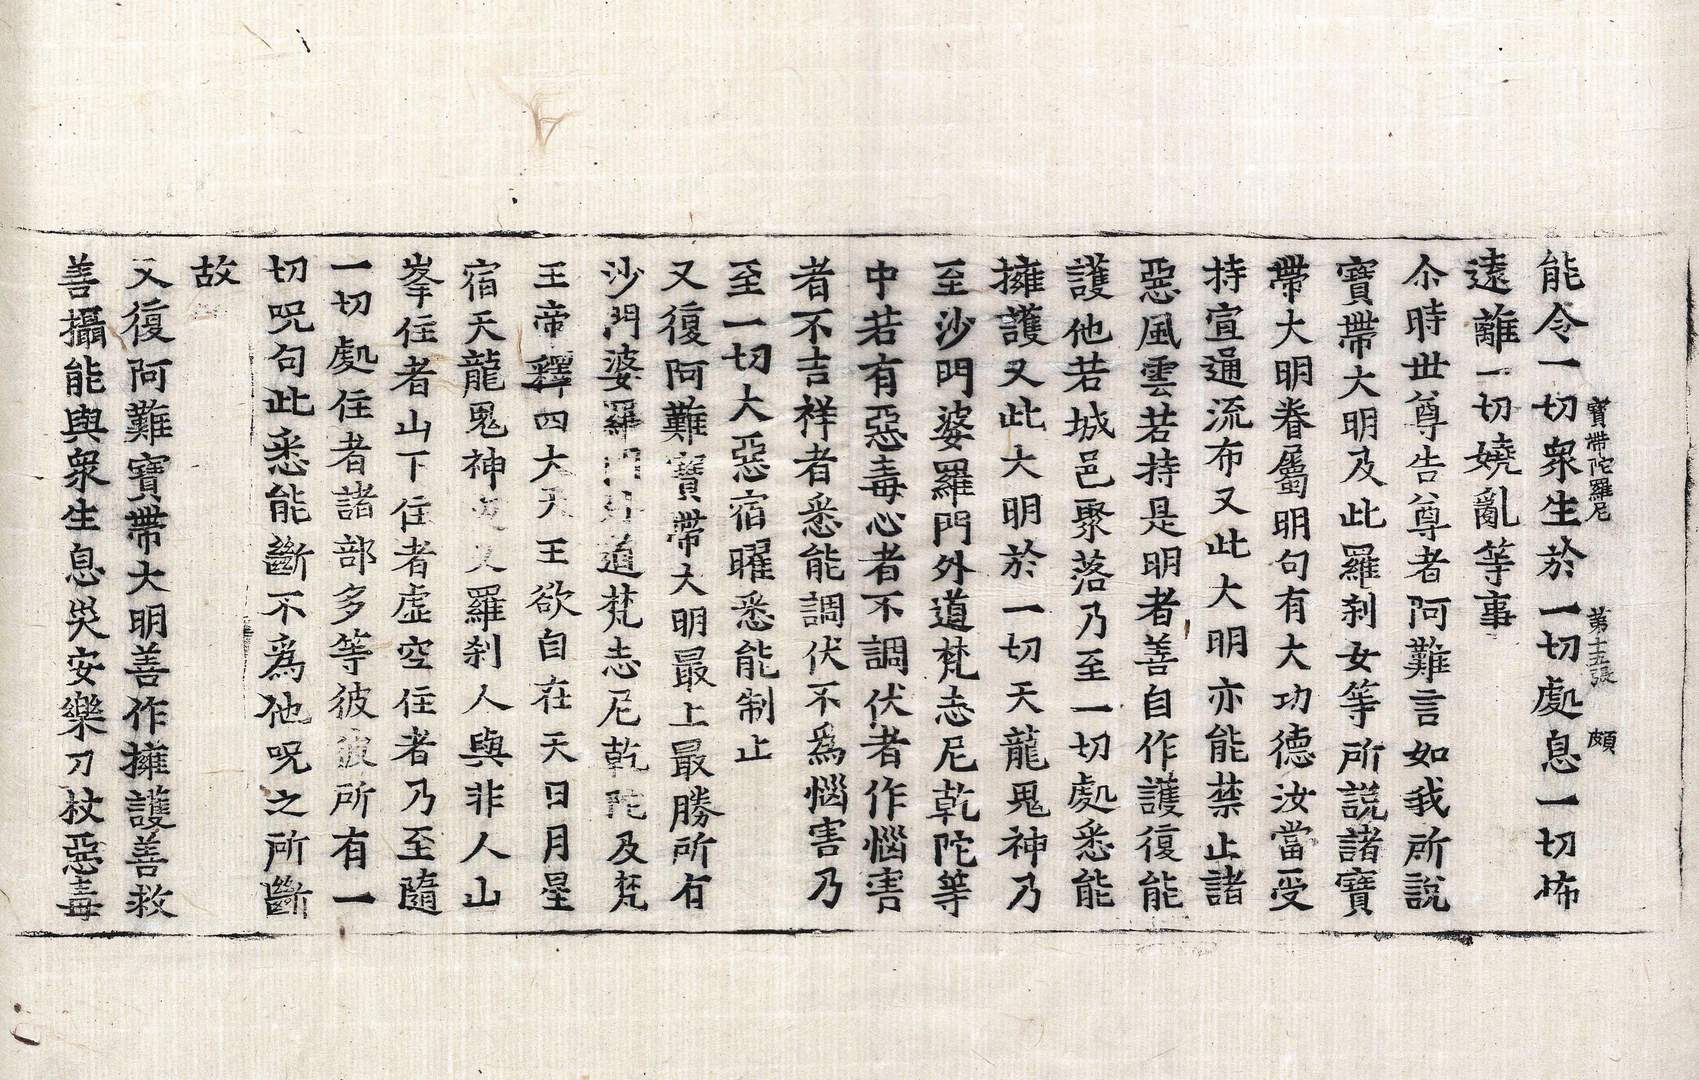 寶帶陀羅尼 第十五張 頗
能令一切衆生於一切處息一切怖
遠離一切嬈亂等事
尒時世尊告尊者阿難言如我所說
寶帶大明及此羅刹女等所說諸寶
帶大明眷屬明句有大功德汝當受
持宣通流布又此大明亦能禁止諸
惡風雲若持是明者善自作護復能
護他若城邑聚落乃至一切處悉能
擁護又此大明於一切天龍鬼神乃
至沙門婆羅門外道梵志尼乾陀等
中若有惡毒心者不調伏者作惱害
者不吉祥者悉能調伏不爲惱害乃
至一切大惡宿曜悉能制止
又復阿難寶帶大明最上最勝所有
沙門婆羅門外道梵志尼乾陀及梵
王帝釋四大天王欲自在天日月星
宿天龍鬼神叉羅刹人與非人山
峯住者山下住者虛空住者乃至隨
一切處住者諸部多等彼彼所有一
切呪句此悉能斷不爲他呪之所斷
故
又復阿難寶帶大明善作擁護善救
善攝能與衆生息災安樂刀杖惡毒